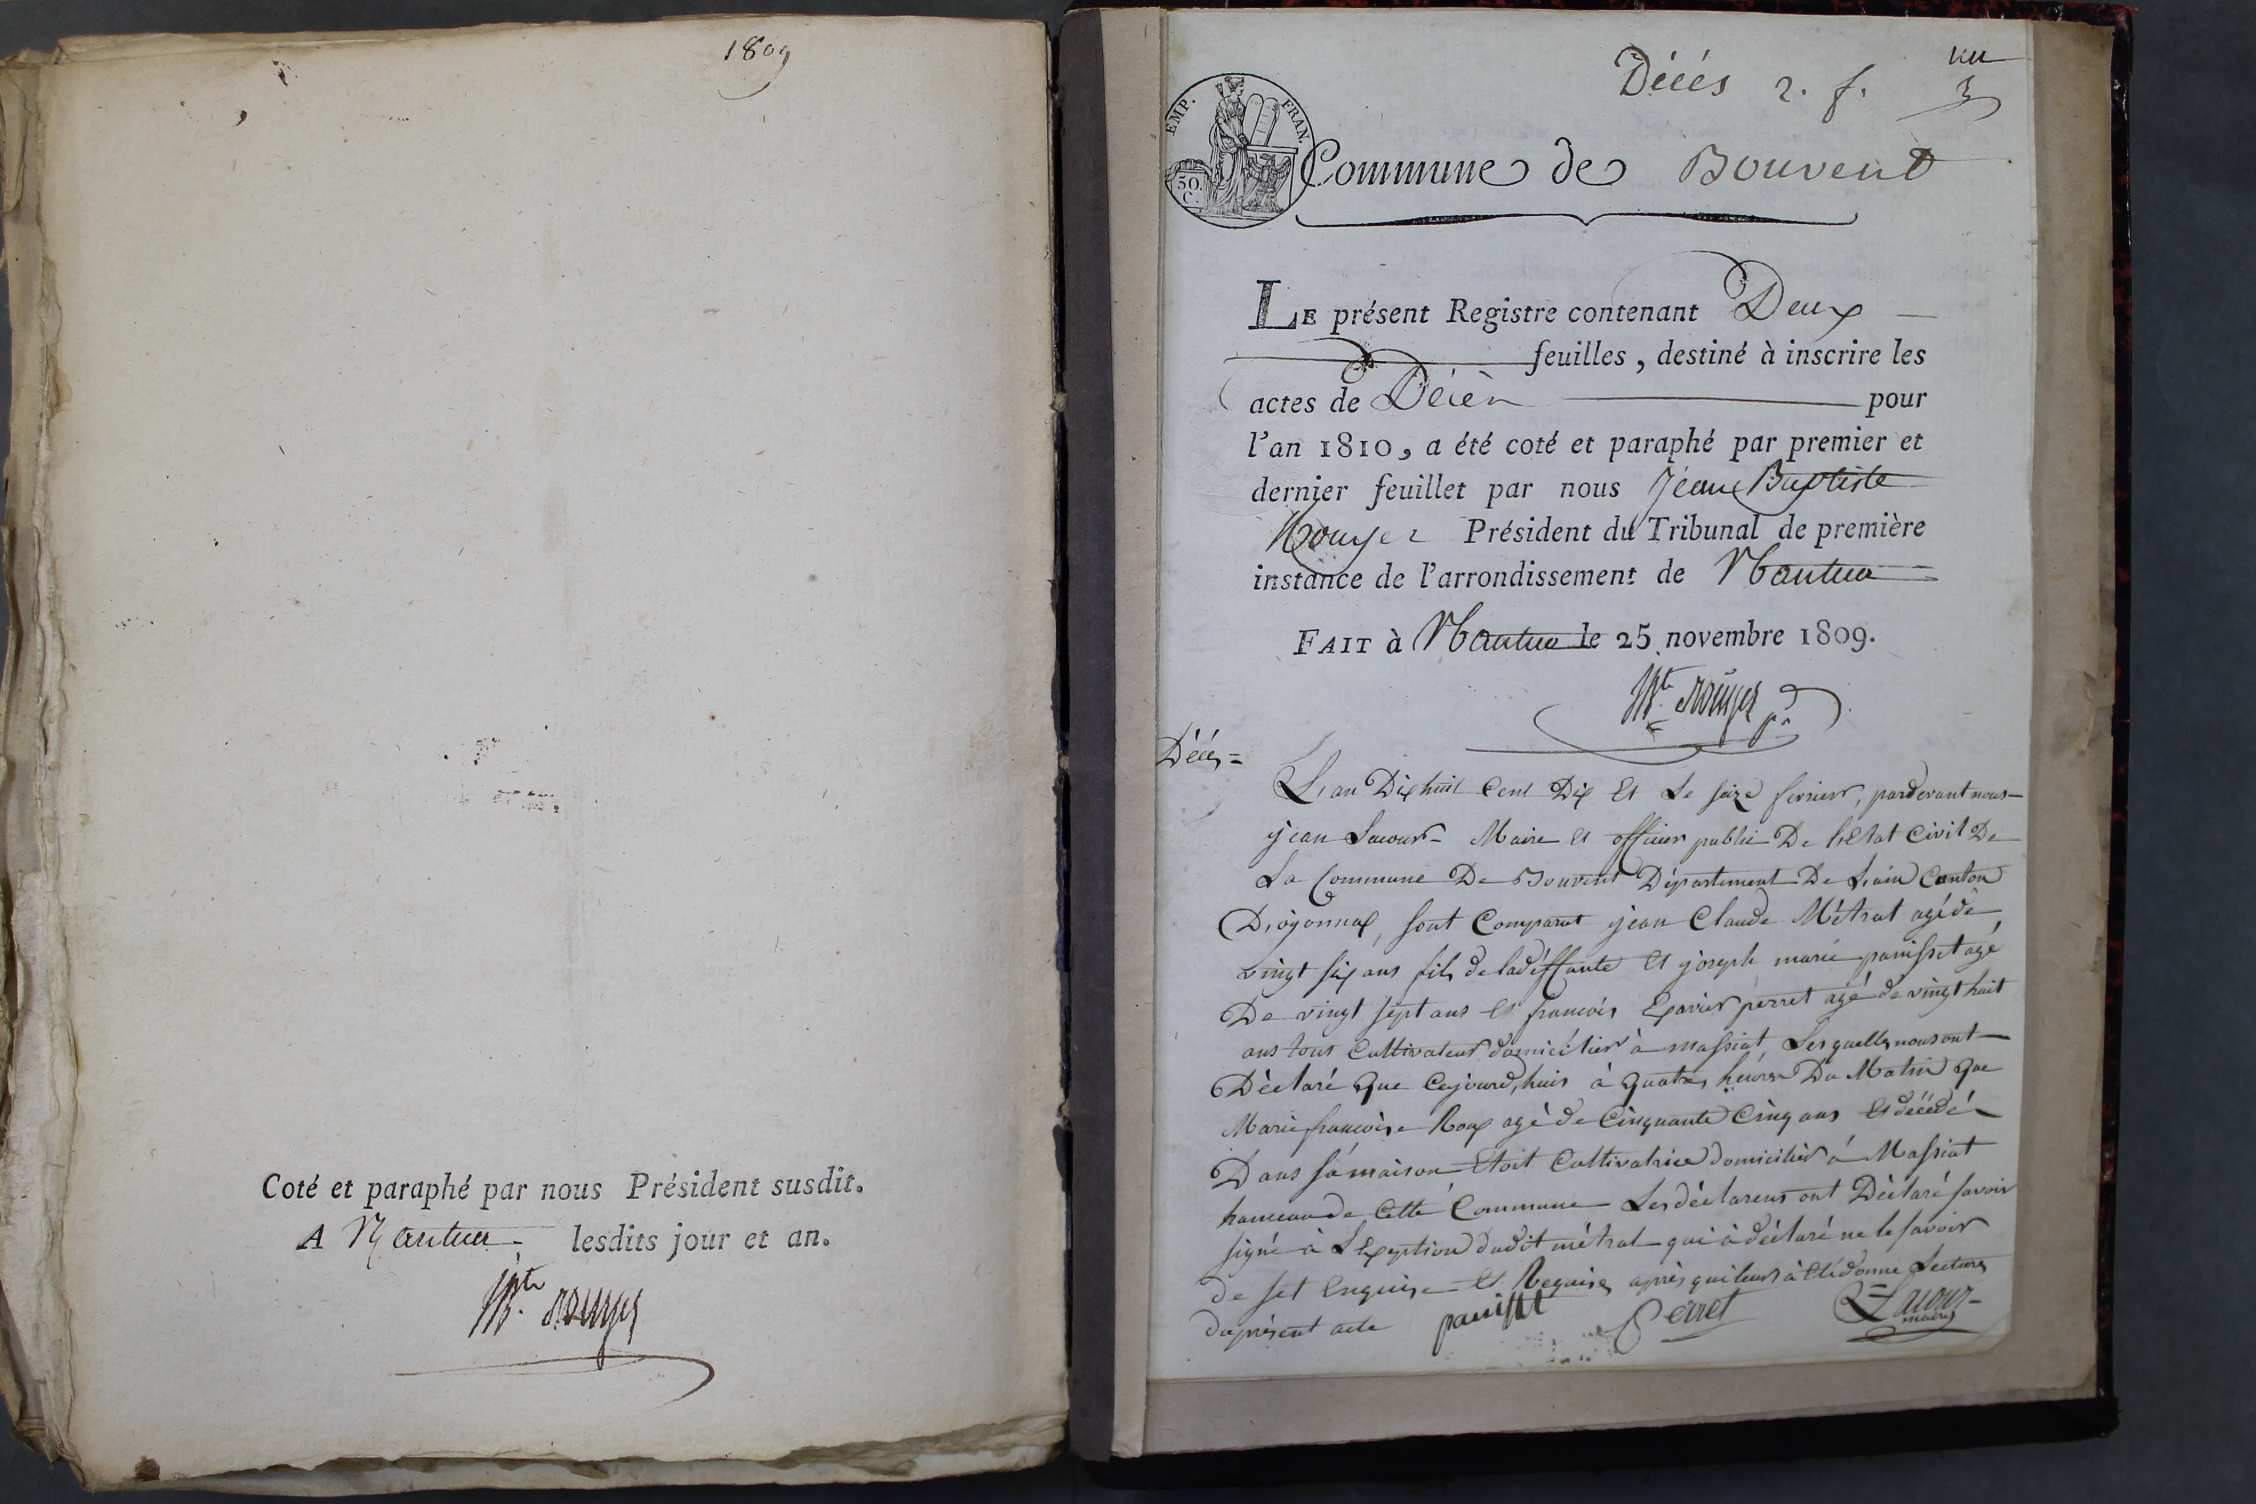 1809
Coté et paraphé par nous Président susdit.
A Nantua lesdits jour et an.
JBte Rouyer
Décés 2. f.
vu
EMP. FRAN.
50. C.
Commune de Bouvent
LE présent Registre contenant Deux
feuilles, destiné à inscrire les
actes de Décès pour
l'an 1810, a été coté et paraphé par premier et
dernier feuillet par nous Jean Baptiste
Rouyer Président du Tribunal de première
instance de l'arrondissement de Nantua
FAIT à Nantua le 25 novembre 1809.
JBte Rouyer pt
Décés =
L'an Dix huit Cent Dix Et Le seize fevrier, pardevant nous
jean Lacour Maire et officier public De l'Etat Civil De
La Commune De Bouvent Département De L'ain Canton
D'oyonnax, sont Comparut jean Claude Métrat agé de
vingt six ans fils de ladéffunte Et joseph marie panisset agé
De vingt sept ans Et francois Exavier perret agé de vingt huit
ans tous Cultivateur domicilier à massiat, Lesquells nous ont
Déclaré Que Cejourd'huis à Quatres heures Du Matin Que
Marie francoise Roux agé de Cinquante Cinq ans Et décédé
Dans sa maison Etoit Cultivatrice domicilier à Massiat
hameau de Cette Commune Les déclareus ont Déclaré savoir
signé à L'Exeption dudit métrat qui à déclaré ne le savoir
de set Enquise Et Requise, après quileurs à Eté donne Lecture
du présent acte panisset Perret Lacour
maire